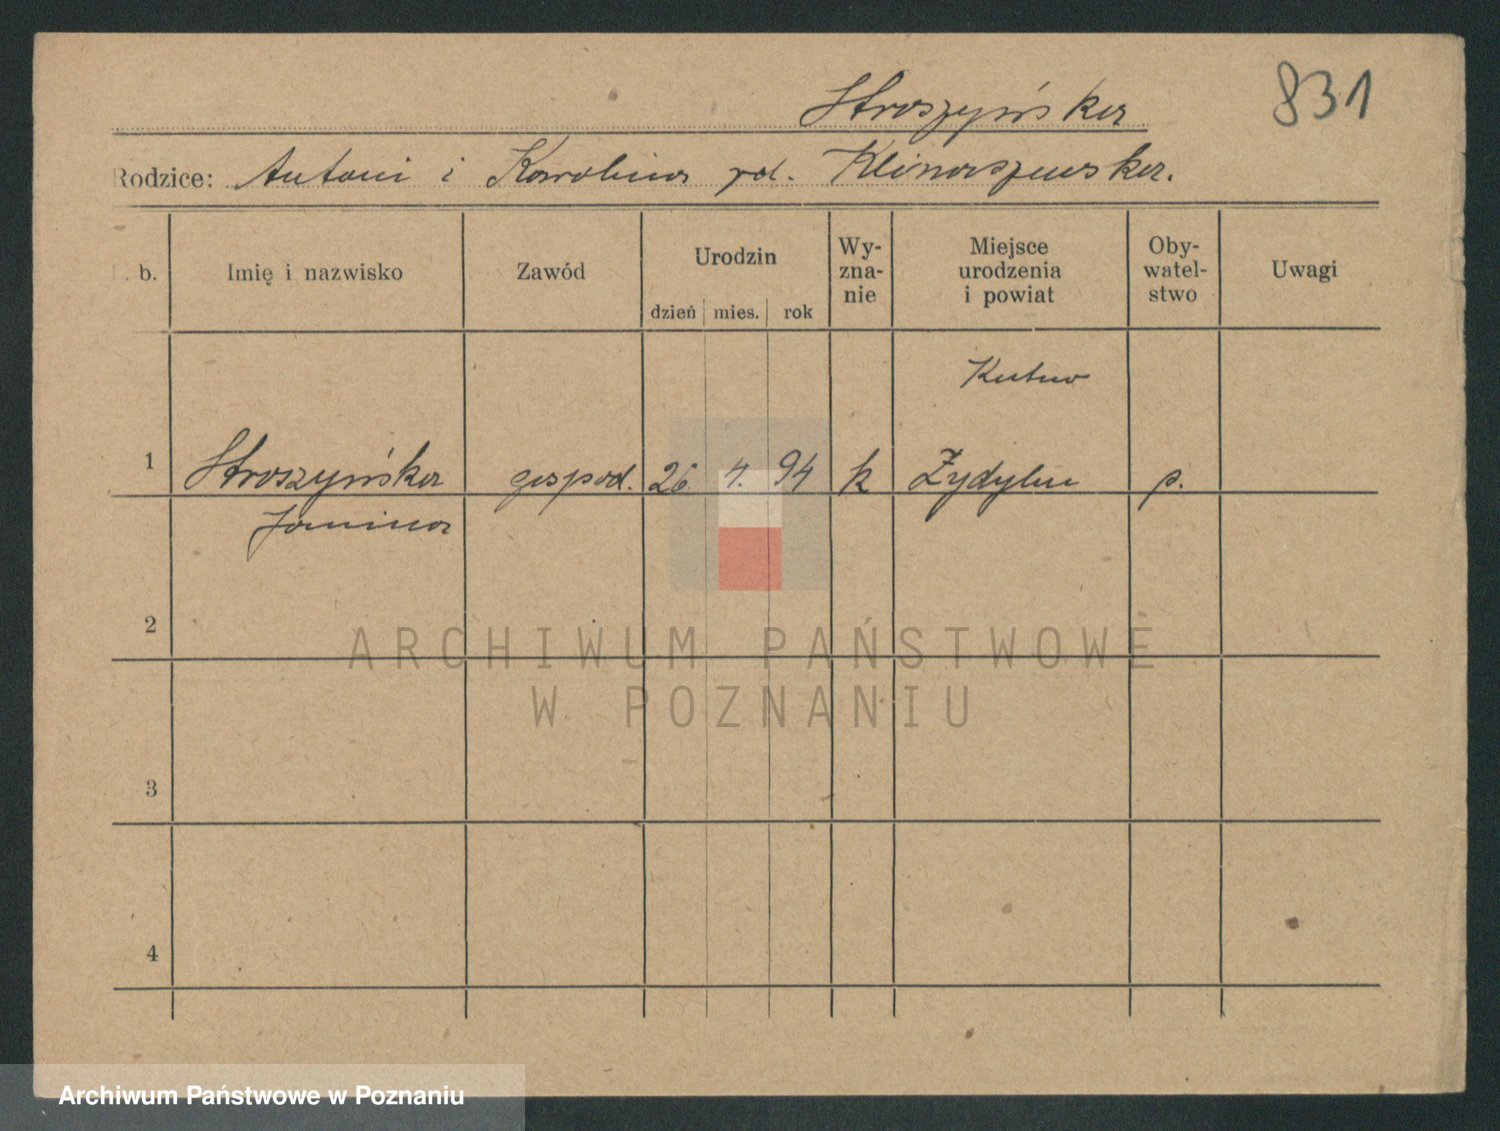 831
Stroszyńska
Rodzice: Antoni i Karolina zd. Klimaszewska.
L. b.
Imię i nazwisko
Zawód
Urodzin
dzień mies. rok
Wy-
zna-
nie
Miejsce
urodzenia
i powiat
Oby-
watel-
stwo
Uwagi
Kutno
1 Stroszyńska gospod. 26. 4. 94 k p.
Janina
2
3
4
ARCHIWUM PAŃSTWOWE
W POZNANIU
Archiwum Państwowe w Poznaniu